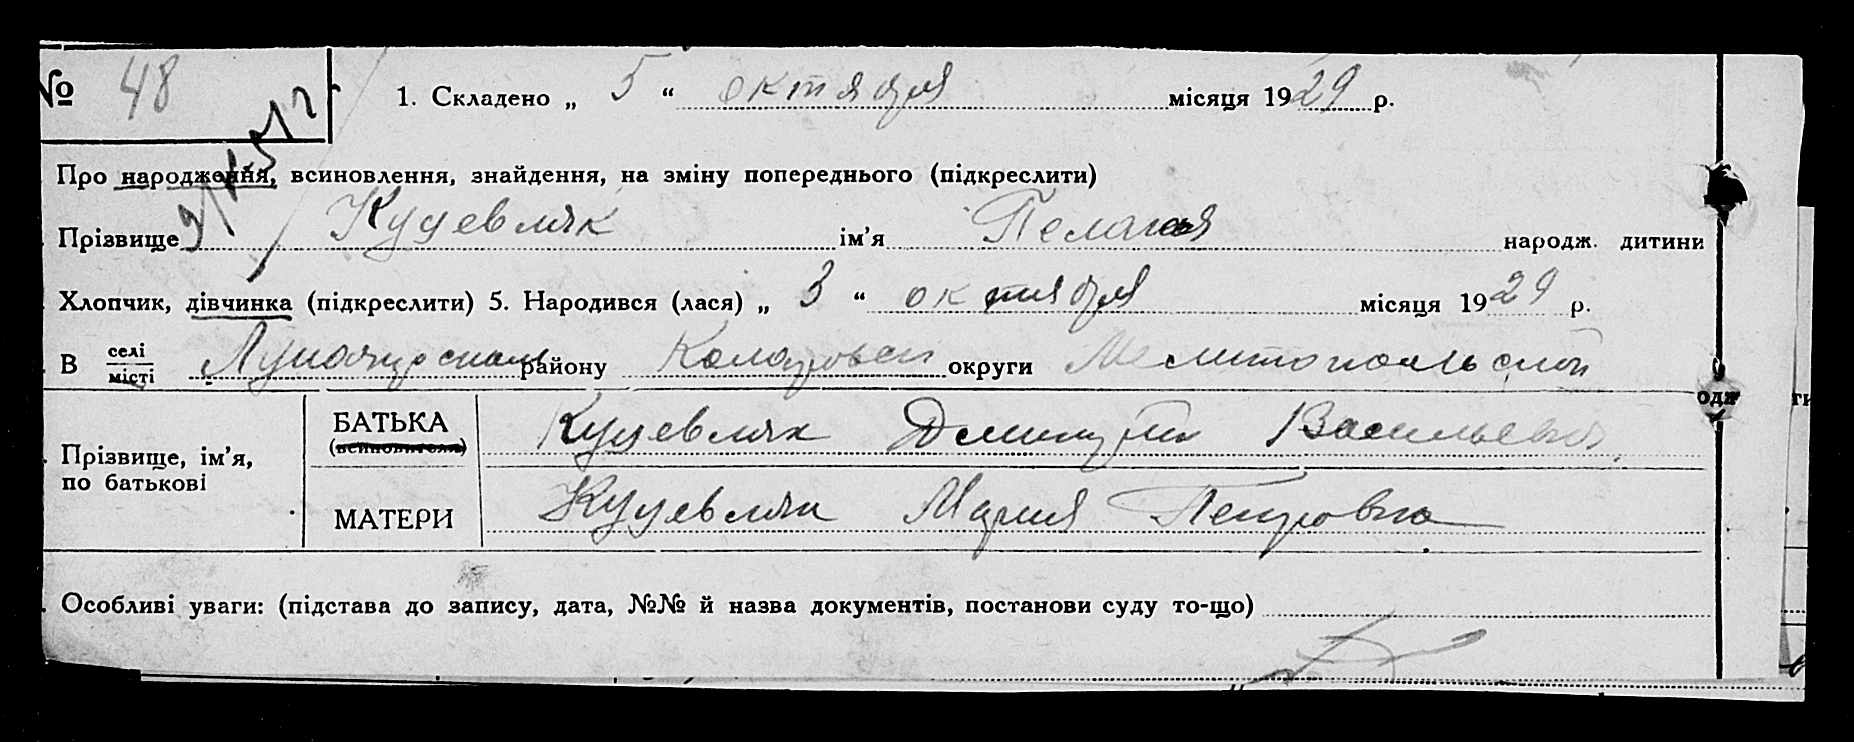 № 48
1. Складено „ 5 “ октября місяця 1929 р.
Про народження, всиновлення, знайдення, на зміну попереднього (підкреслити)
Прізвище ім’я Пелагея народж. дитини
Хлопчик, дівчинка (підкреслити) 5. Народився (лася) „ 3 “ октября місяця 1929 р.
В селі місті району округи Мелитопольской
Прізвище, ім’я, по батькові
БАТЬКА (всиновителя) Дмитрий Васильевич
МАТЕРИ Мария Петровна
Особливі уваги: (підстава до запису, дата, №№ й назва документів, постанови суду то-що)